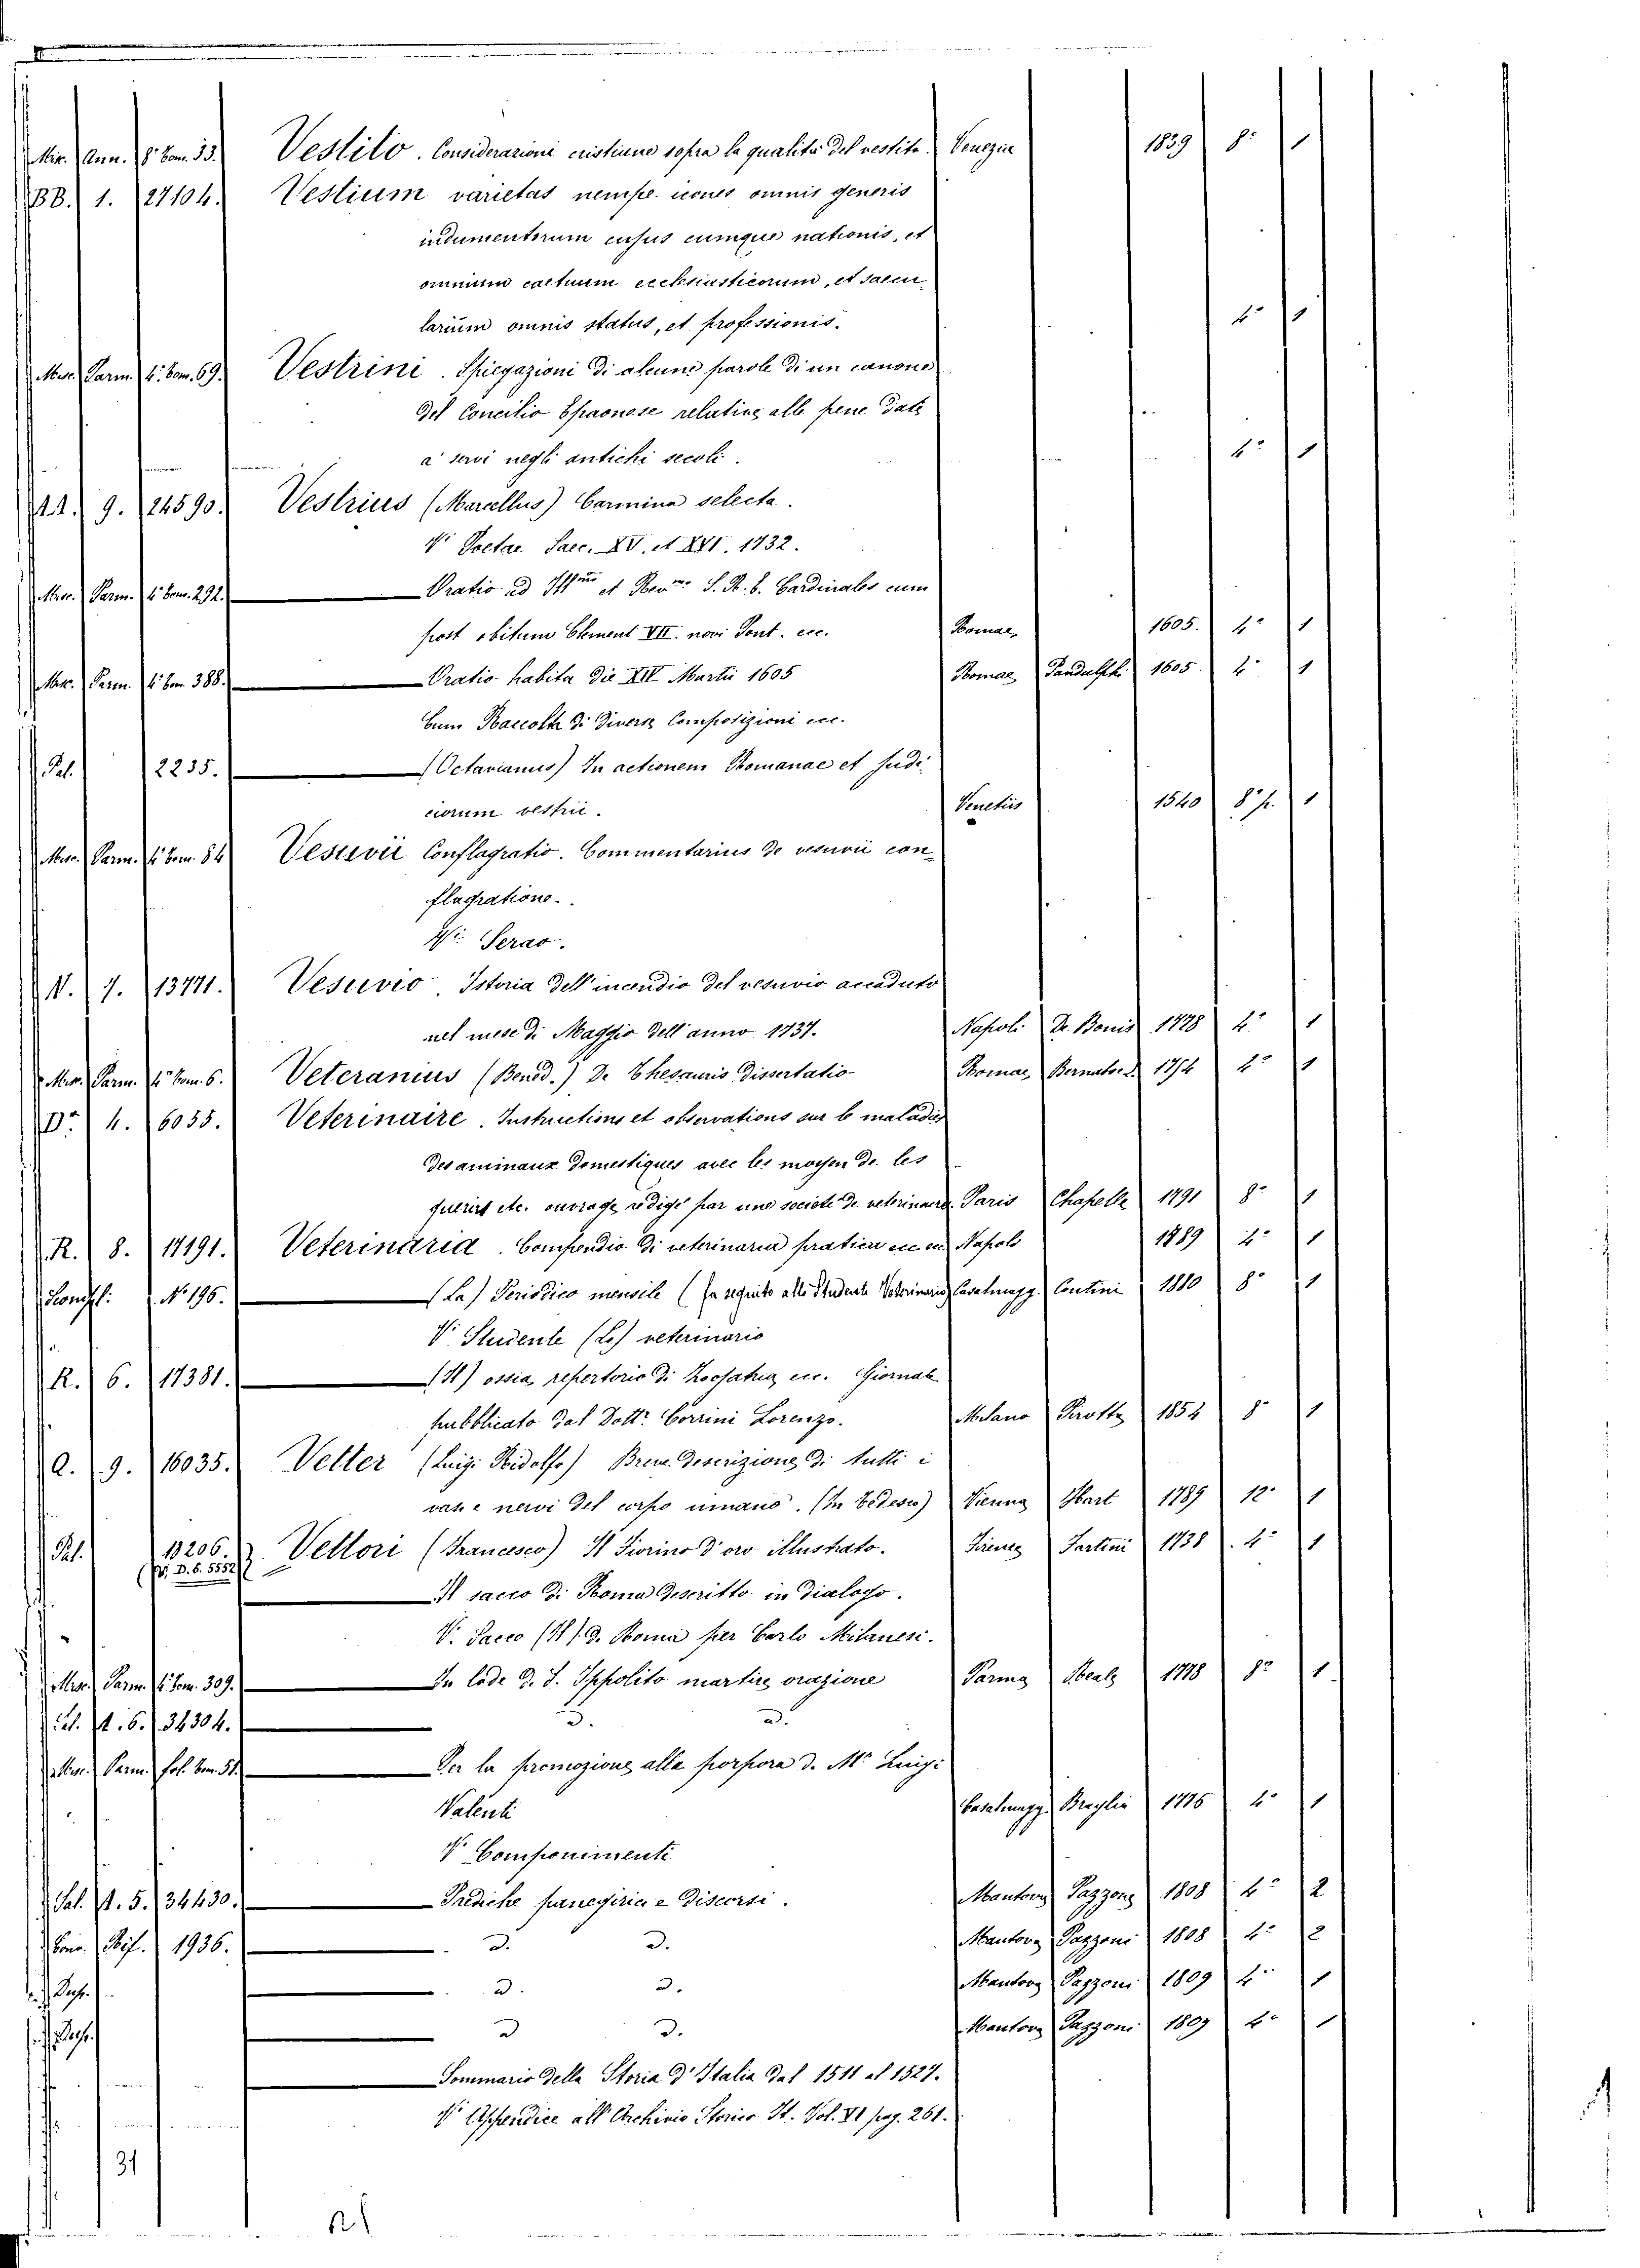 Misc. Ann. 8° tom. 33. Vestito. Considerazioni cristiane sopra la qualità del vestito. Venezia 1839 8° 1
BB. 1. 27104. Vestium varietas nempe icones omnis generis
indumentorum cujus cumque nationis, et
omnium coetuum ecclesiasticorum, et saecu
larium omnis status, et professionis. 4° 1
Misc. Parm. 4° tom. 69. Vestrini. Spiegazioni di alcune parole di un canone
del Concilio Epaonese relative alle pene date
a' servi negli antichi secoli. 4° 1
AA. 9. 24590. Vestrius (Marcellus) Carmina selecta.
V. Poetae Saec. XV. et XVI. 1732.
Misc. Parm. 4° tom. 292. Oratio ad Ill.mos et Rev.mos S. R. E. Cardinales cum
post obitum Clement VIII. novi Pont. ecc. Romae, 1605. 4° 1
Misc. Parm. 4° tom. 388. Oratio habita die XIV Martii 1605 Romae Pandulphi 1605. 4° 1
Cum Raccolta di diverse Composizioni ecc.
Pal. 2235. (Octavianus) In actionem Romanae et judi
ciorum vestrii. Venetiis 1540 8° p. 1
Misc. Parm. 4° tom. 84 Vesuvii Conflagratio. Commentarius de vesuvii con
flagratione.
V. Serao.
N. 7. 13771. Vesuvio. Istoria dell'incendio del vesuvio accaduto
nel mese di Maggio dell'anno 1737. Napoli De Bonis 1778 4° 1
Misc. Parm. 4° tom. 6. Veteranius (Bened.) De Thesauris dissertatio Romae, Bernabod. 1754 4° 1
D. 4. 6055. Veterinaire. Instructions et observations sur le maladies
des aminaux domestiques avec les moyen de les
guerirs etc. ouvrage redigé par une société de veterinaire. Paris Chapelle 1791 8° 1
R. 8. 17191. Veterinaria. Compendio di veterinaria pratica ecc. ecc. Napoli 1889 4° 1
N° 196. (La) Periodico mensile (In seguito allo Studente Veterinario) Casalmagg. Contini 1880 8° 1
V. Studente (Lo) veterinario
R. 6. 17381. (Il) ossia repertorio di Zoojatria ecc. Giornale
pubblicato dal Dott. Corrini Lorenzo. Milano Pirotta 1854 8° 1
Q. 9. 16035. Vetter (Luigi Ridolfo) Breve descrizione di tutti i
vasi e nervi del corpo umano. (In tedesco) Vienna Hart 1789 12° 1
Pal. 13206. (V. D. 6. 5552) Vettori (Francesco) Il Fiorino d'oro illustrato. Firenze Tartini 1738 4° 1
Il sacco di Roma descritto in dialogo.
V. Sacco (Il) d. Roma per Carlo Milanesi.
Misc. Parm. 4° tom. 309. In lode d. S. Ippolito martire orazione Parma Reale 1778 8° 1
Sal. A. 6. 34304. d. d.
Misc. Parm. fol. tom. 51. Per la promozione alla porpora d. M. Luigi
Valenti Casalmagg. Braglia 1776 4° 1
V. Componimenti
Sal. A. 5. 34430. Prediche panegirici e discorsi. Mantova Pazzoni 1808 4° 2
Rif. 1936. d. d. Mantova Pazzoni 1808 4° 2
d. d. Mantova Pazzoni 1809 4° 1
d. d. Mantova Pazzoni 1809 4° 1
Sommario della Storia d'Italia dal 1511 al 1527.
V. Appendice all'Archivio Storico It. Vol. VI pag. 261.
31